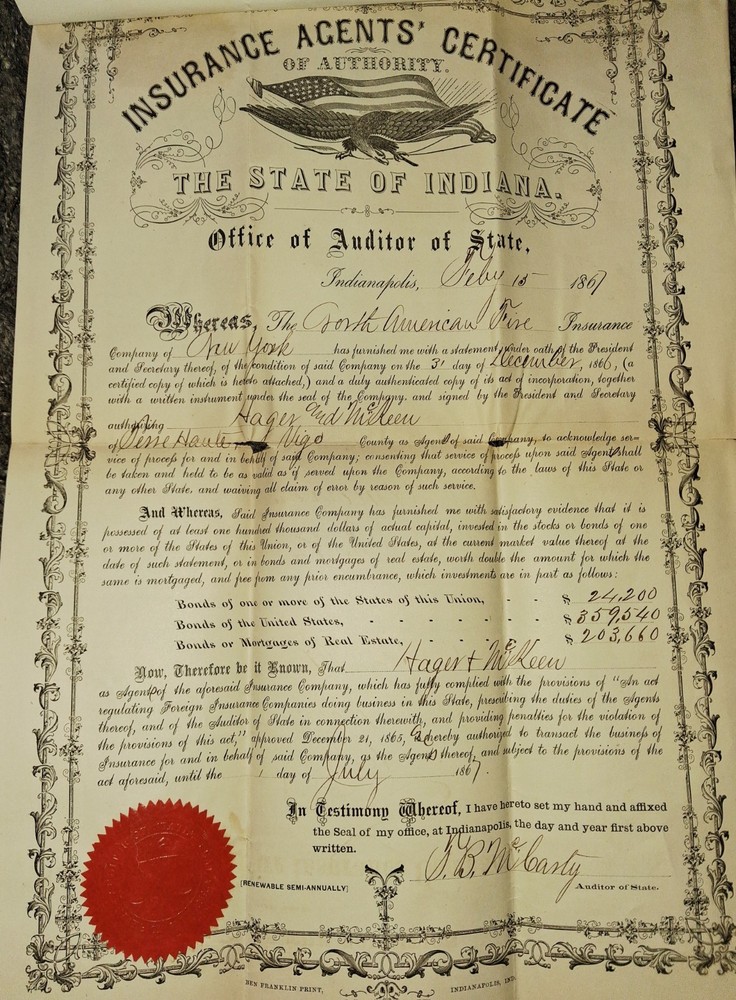 INSURANCE AGENTS' CERTIFICATE
OF AUTHORITY.
THE STATE OF INDIANA.
Office of Auditor of State,
Indianapolis, Feby 15 1867
Whereas, The North American Fire Insurance
Company of New York has furnished me with a statement under oath of the President
and Secretary thereof, of the condition of said Company on the 31 day of December, 1866, (a
certified copy of which is hereto attached,) and a duly authenticated copy of its act of incorporation, together
with a written instrument under the seal of the Company, and signed by the President and Secretary
authorizing Hager and McKeen
of Terre Haute Vigo County as Agents of said Company, to acknowledge ser-
vice of process for and in behalf of said Company; consenting that service of process upon said Agents shall
be taken and held to be as valid as if served upon the Company, according to the laws of this State or
any other State, and waiving all claim of error by reason of such service.
And Whereas, Said Insurance Company has furnished me with satisfactory evidence that it is
possessed of at least one hundred thousand dollars of actual capital, invested in the stocks or bonds of one
or more of the States of this Union, or of the United States, at the current market value thereof at the
date of such statement, or in bonds and mortgages of real estate, worth double the amount for which the
same is mortgaged, and free from any prior encumbrance, which investments are in part as follows:
Bonds of one or more of the States of this Union, - - $ 24,200
Bonds of the United States, - - - - - - $ 359,540
Bonds or Mortgages of Real Estate, - - - - $ 203,660
Now, Therefore be it Known, That Hager & McKeen
as Agents of the aforesaid Insurance Company, which has fully complied with the provisions of "An act
regulating Foreign Insurance Companies doing business in this State, prescribing the duties of the Agents
thereof, and of the Auditor of State in connection therewith, and providing penalties for the violation of
the provisions of this act," approved December 21, 1865, is hereby authorized to transact the business of
Insurance for and in behalf of said Company, as the Agents thereof, and subject to the provisions of the
act aforesaid, until the 1 day of July 1867.
In Testimony Whereof, I have hereto set my hand and affixed
the Seal of my office, at Indianapolis, the day and year first above
written.
T. B. McCarty
Auditor of State.
[RENEWABLE SEMI-ANNUALLY]
BEN FRANKLIN PRINT, INDIANAPOLIS, IND.